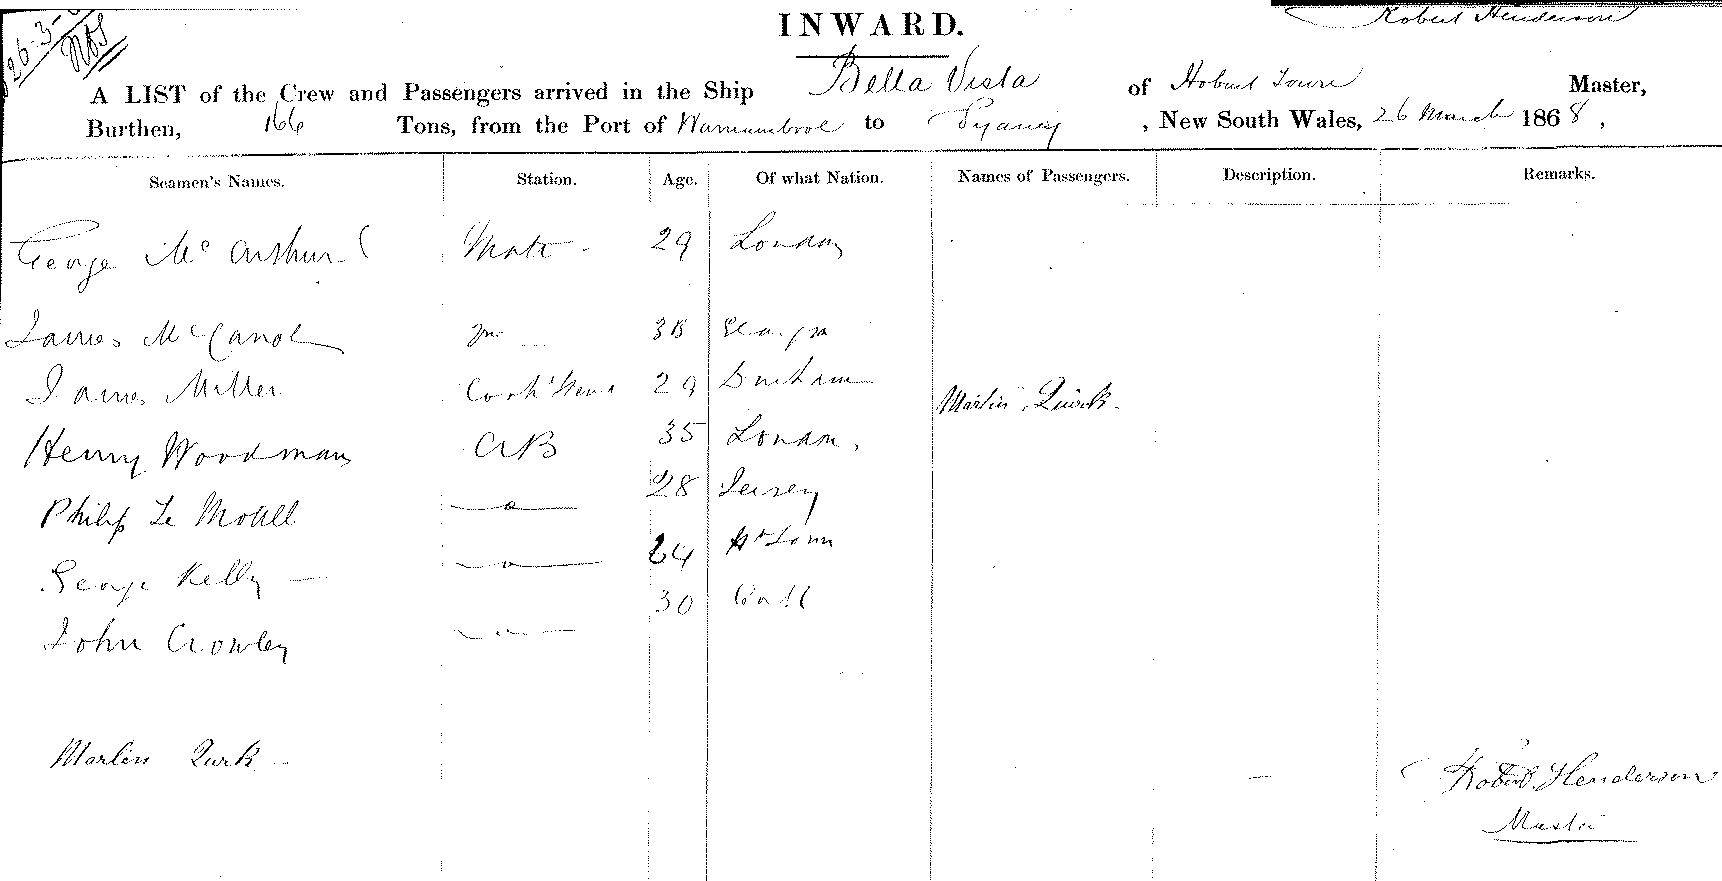 26-3-
Robert Henderson
INWARD.
A LIST of the Crew and Passengers arrived in the Ship Bella Vista of Hobart Town Master,
Burthen, 166 Tons, from the Port of Warrnambool to Sydney, New South Wales, 26 March 1868,
Seamen's Names. Station. Age. Of what Nation. Names of Passengers. Description. Remarks.
George Mc Arthur Mate 29 London
James Mc 38
James Miller Cook 29 Durham
Martin Quirk.
Henry Woodman AB 35 London,
Philip Le 28 Jersey
George Kelly 24 Town
John Crowley 30
Martin Quirk
Robert Henderson
Master